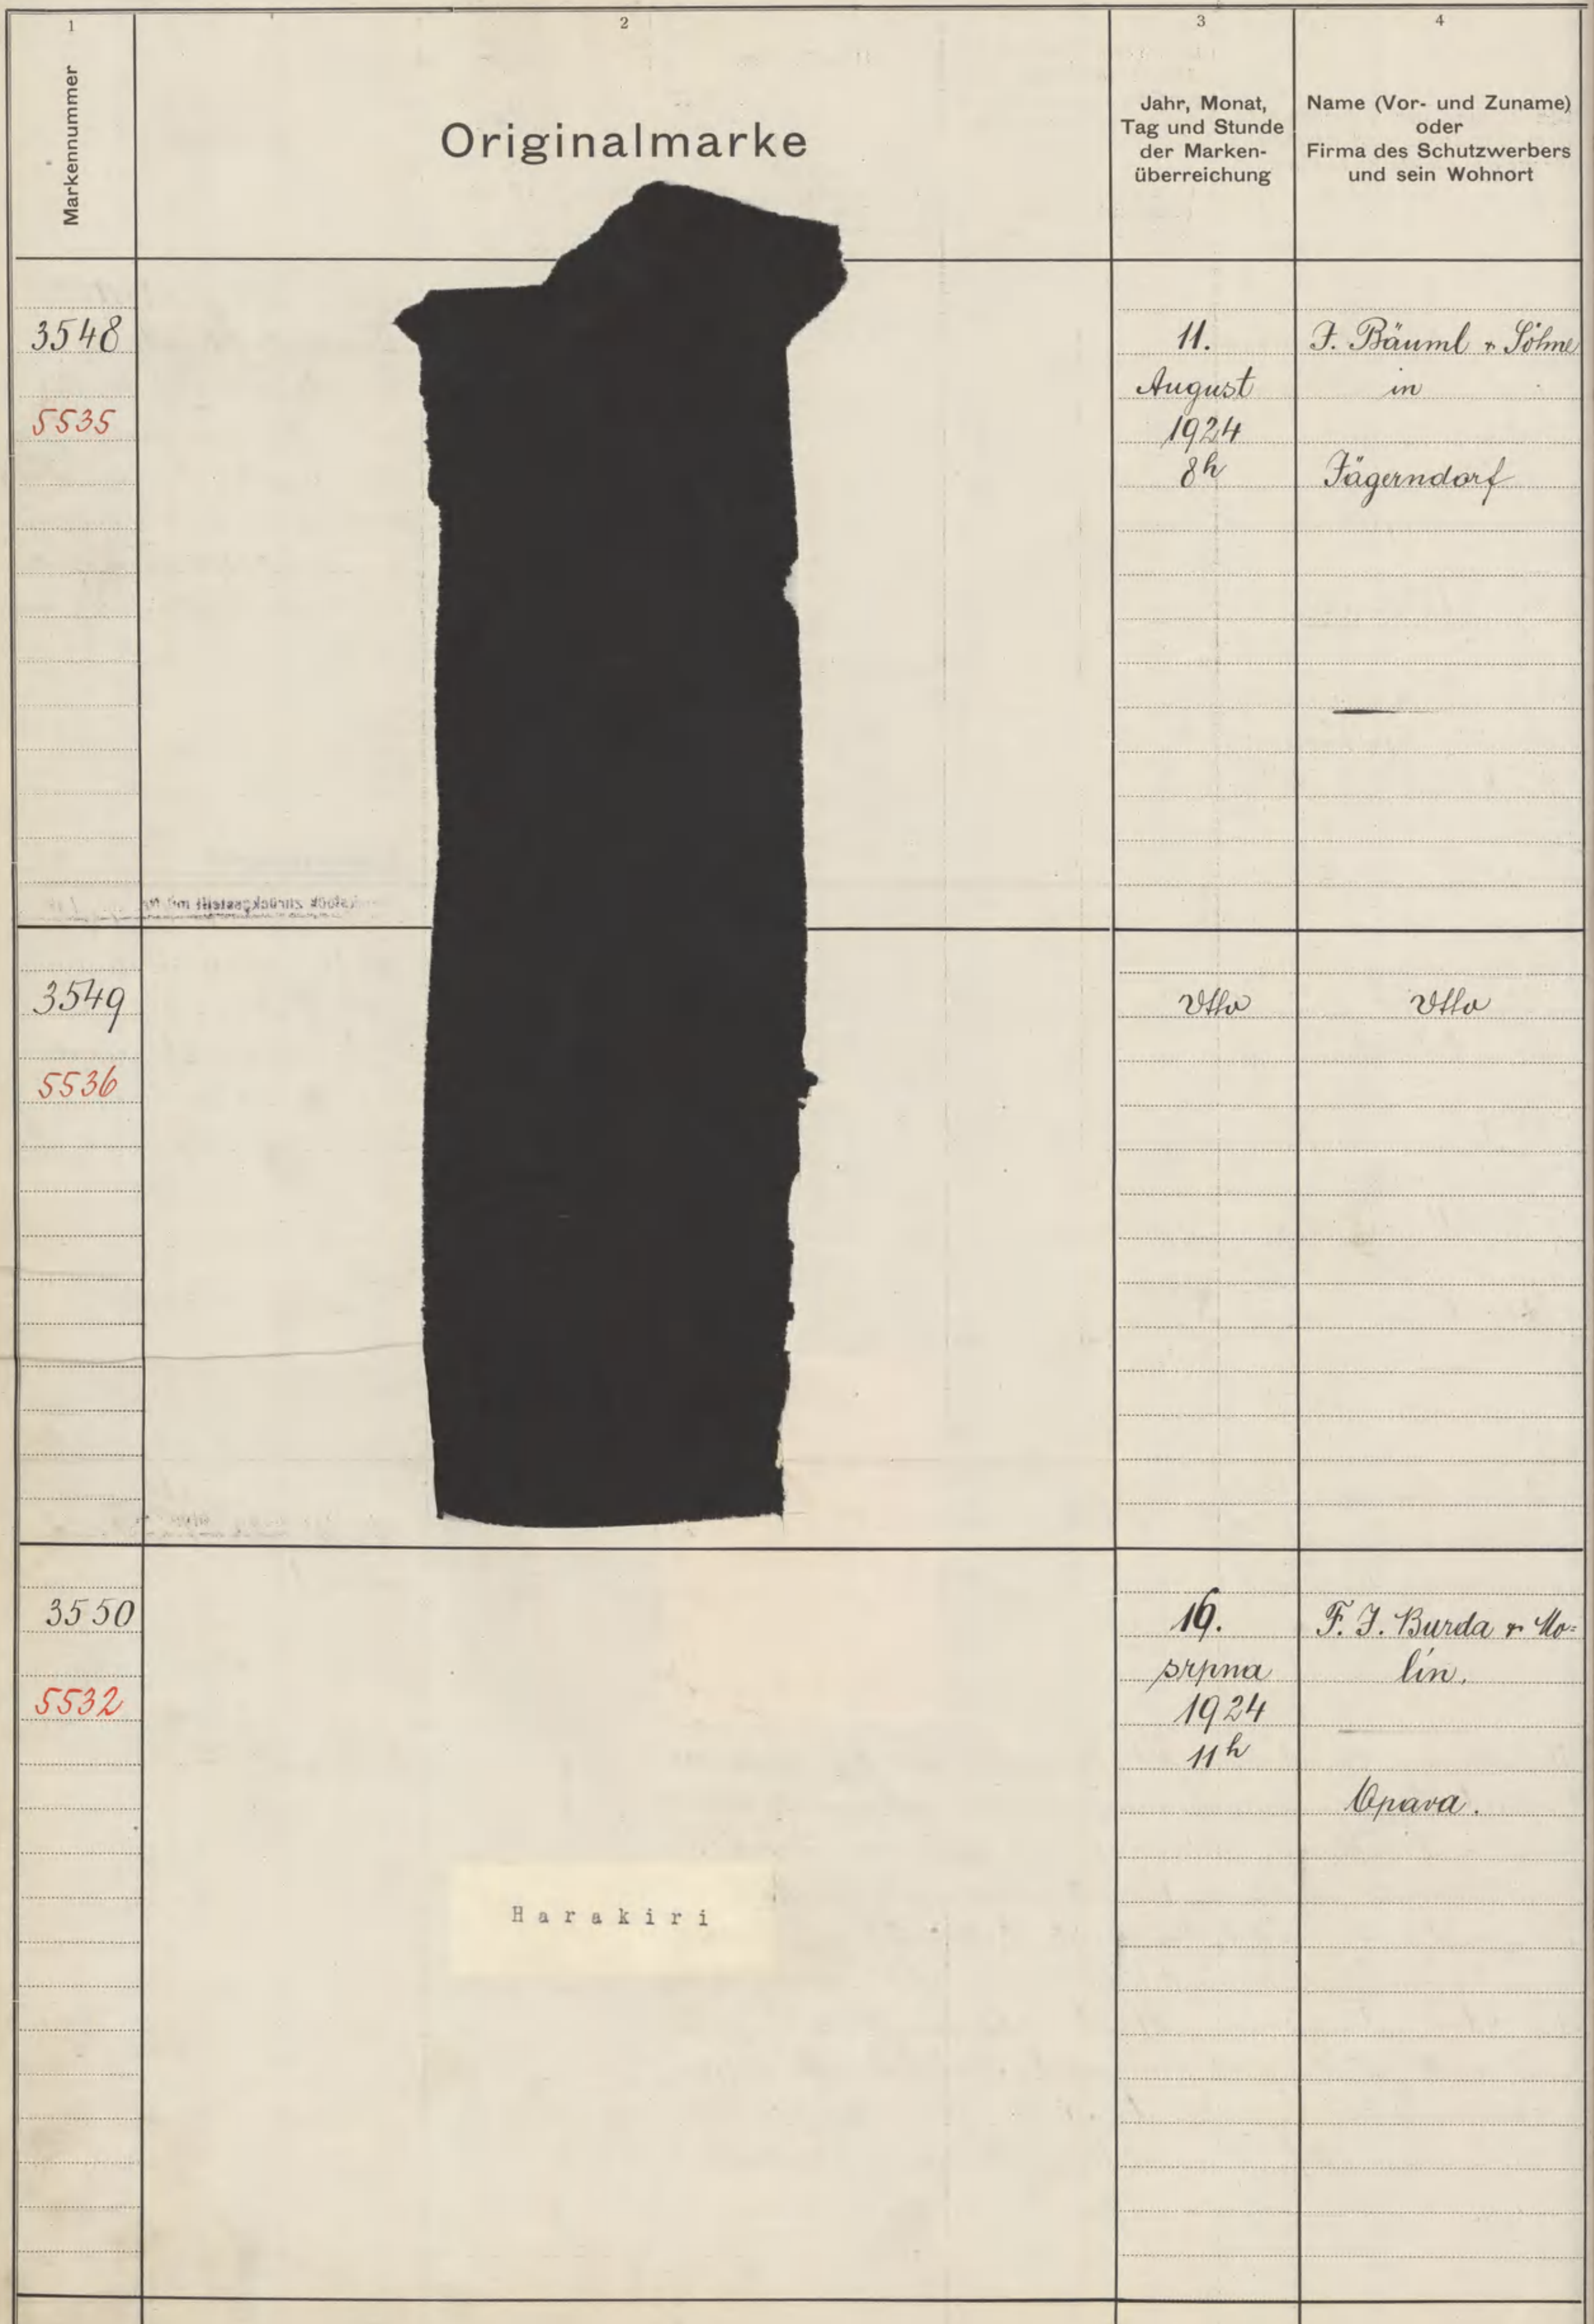 1
2
3
4
Markennummer
Originalmarke
Jahr, Monat,
Tag und Stunde
der Marken-
überreichung
Name (Vor- und Zuname)
oder
Firma des Schutzwerbers
und sein Wohnort
3548
5535
11.
August
1924
8h
J. Bäuml & Söhne
in
Jägerndorf
3549
5536
3550
5532
Harakiri
srpna
1924
11h
F. J. Burda & Mo=
lín.
Opava.